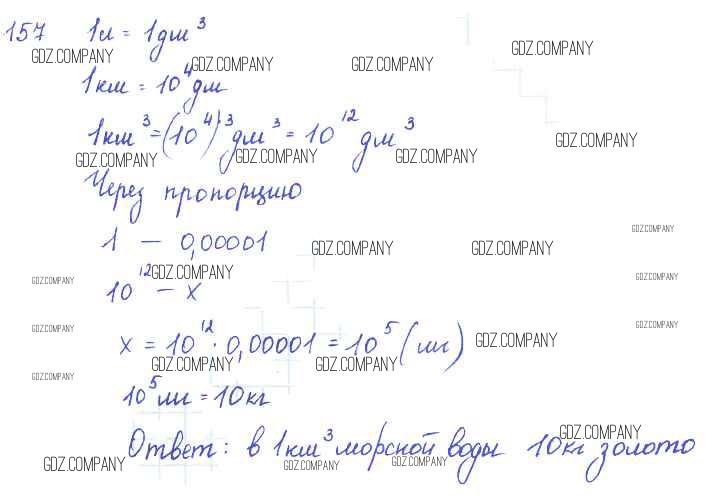 157 1л = 1дм³
GDZ.COMPANY GDZ.COMPANY GDZ.COMPANY GDZ.COMPANY
1км = 10⁴дм
1км³ = (10⁴)³дм³ = 10¹² дм³
GDZ.COMPANY GDZ.COMPANY GDZ.COMPANY GDZ.COMPANY
Через пропорцию
1 – 0,00001
GDZ.COMPANY GDZ.COMPANY GDZ.COMPANY
10¹² – x
GDZ.COMPANY GDZ.COMPANY GDZ.COMPANY
x = 10¹² · 0,00001 = 10⁵ (мг)
GDZ.COMPANY GDZ.COMPANY GDZ.COMPANY
GDZ.COMPANY GDZ.COMPANY GDZ.COMPANY
10⁵мг = 10кг
Ответ: в 1км³ морской воды 10кг золото
GDZ.COMPANY GDZ.COMPANY GDZ.COMPANY GDZ.COMPANY